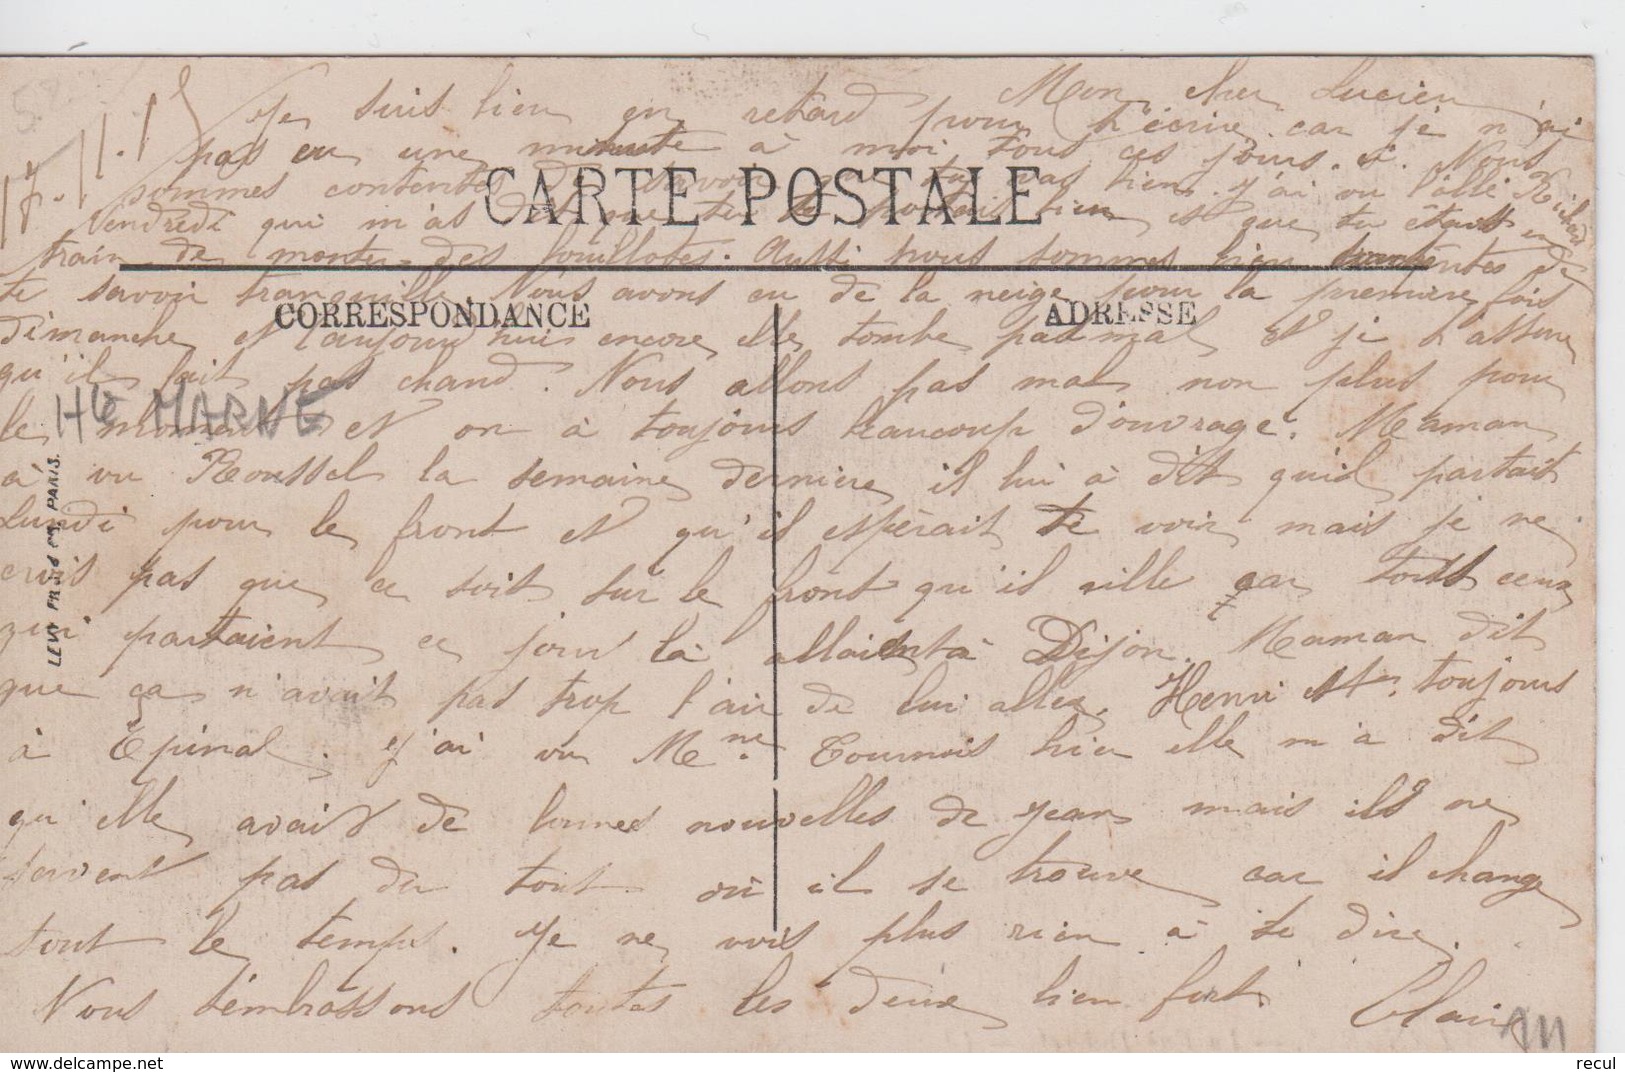 17.11.15
Mon cher Lucien
Je suis bien en retard pour t'écrire car je n'ai
pas eu une minute à moi tous ces jours. ci. Nous
sommes contentes de savoir que tu vas bien. j'ai vu l'allé Richard
Vendredi qui m'as dit que tu te portais bien et que tu étais en
train de monter des fouillotes. Aussi nous sommes bien contentes de
te savoir tranquille. Nous avons eu de la neige pour la première fois
dimanche et aujourd'hui encore elle tombe pas mal et je t'assure
qu'il fait pas chaud. Nous allons pas mal non plus pour
le moment et on à toujours beaucoup d'ouvrage. Maman
à vu Roussel la semaine dernière il lui à dit quil partait
Lundi pour le front et qu'il espérait te voir mais je ne
crois pas que ce soit sur le front qu'il aille car tous ceux
qui partaient ce jour là allaient à Dijon. Maman dit
que ça n'avait pas trop l'air de lui aller. Henri est toujours
à Epinal. J'ai vu Mme Tournois hier elle m'a dit
qu'elle avait de bonnes nouvelles de Jean mais ils ne
savent pas du tout où il se trouve car il change
tout le temps. Je ne vois plus rien à te dire.
Nous t'embrassons toutes les deux bien fort
Claire
CARTE POSTALE
CORRESPONDANCE
ADRESSE
Hte MARNE
LEVY FILS ET Cie PARIS.
recul